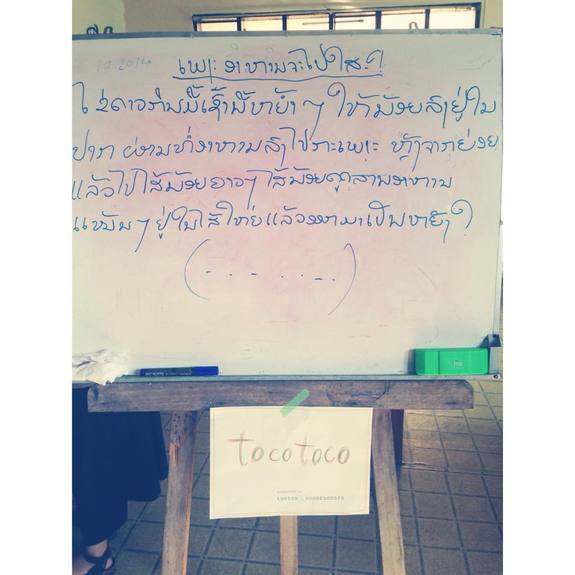 10.2014
ເພາະ ອາຫານຈະໄປໃສ?
ໄຂ່ດາວກິນມື້ເຊົ້ານີ້ຫຍ້ຳໆ ໃຫ້ນ້ອຍລົງຢູ່ໃນ
ປາກ ຜ່ານທໍ່ອາຫານລົງໄປກະເພາະ ຫຼັງຈາກຍ່ອຍ
ແລ້ວໄປໄສ້ນ້ອຍຍາວໆ ໄສ້ນ້ອຍດູດສານອາຫານ
ໆ ຢູ່ໃນໄສ້ໃຫຍ່ແລ້ວອອກມາເປັນຫຍັງ?
(- - - - - -)
tocotoco